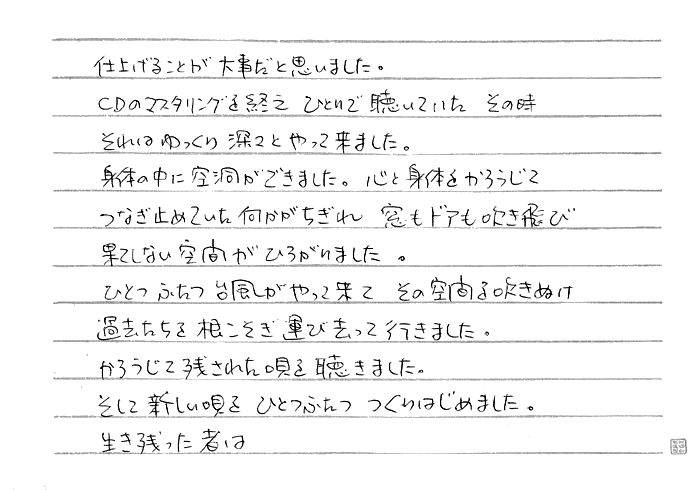 仕上げることが大事だと思いました。
CDのマスタリングを経え ひとりで聴いていた その時
それはゆっくり深々とやって来ました。
身体の中に空洞ができました。心と身体をかろうじて
つなぎ止めていた何かがちぎれ 窓もドアも吹き飛び
果てしない空間がひろがりました 。
ひとつ ふたつ 台風がやって来て その空間を吹きぬけ
過去たちを根こそぎ運び去って行きました。
かろうじて残された唄を聴きました。
そして新しい唄を ひとつふたつ つくりはじめました。
生き残った者は